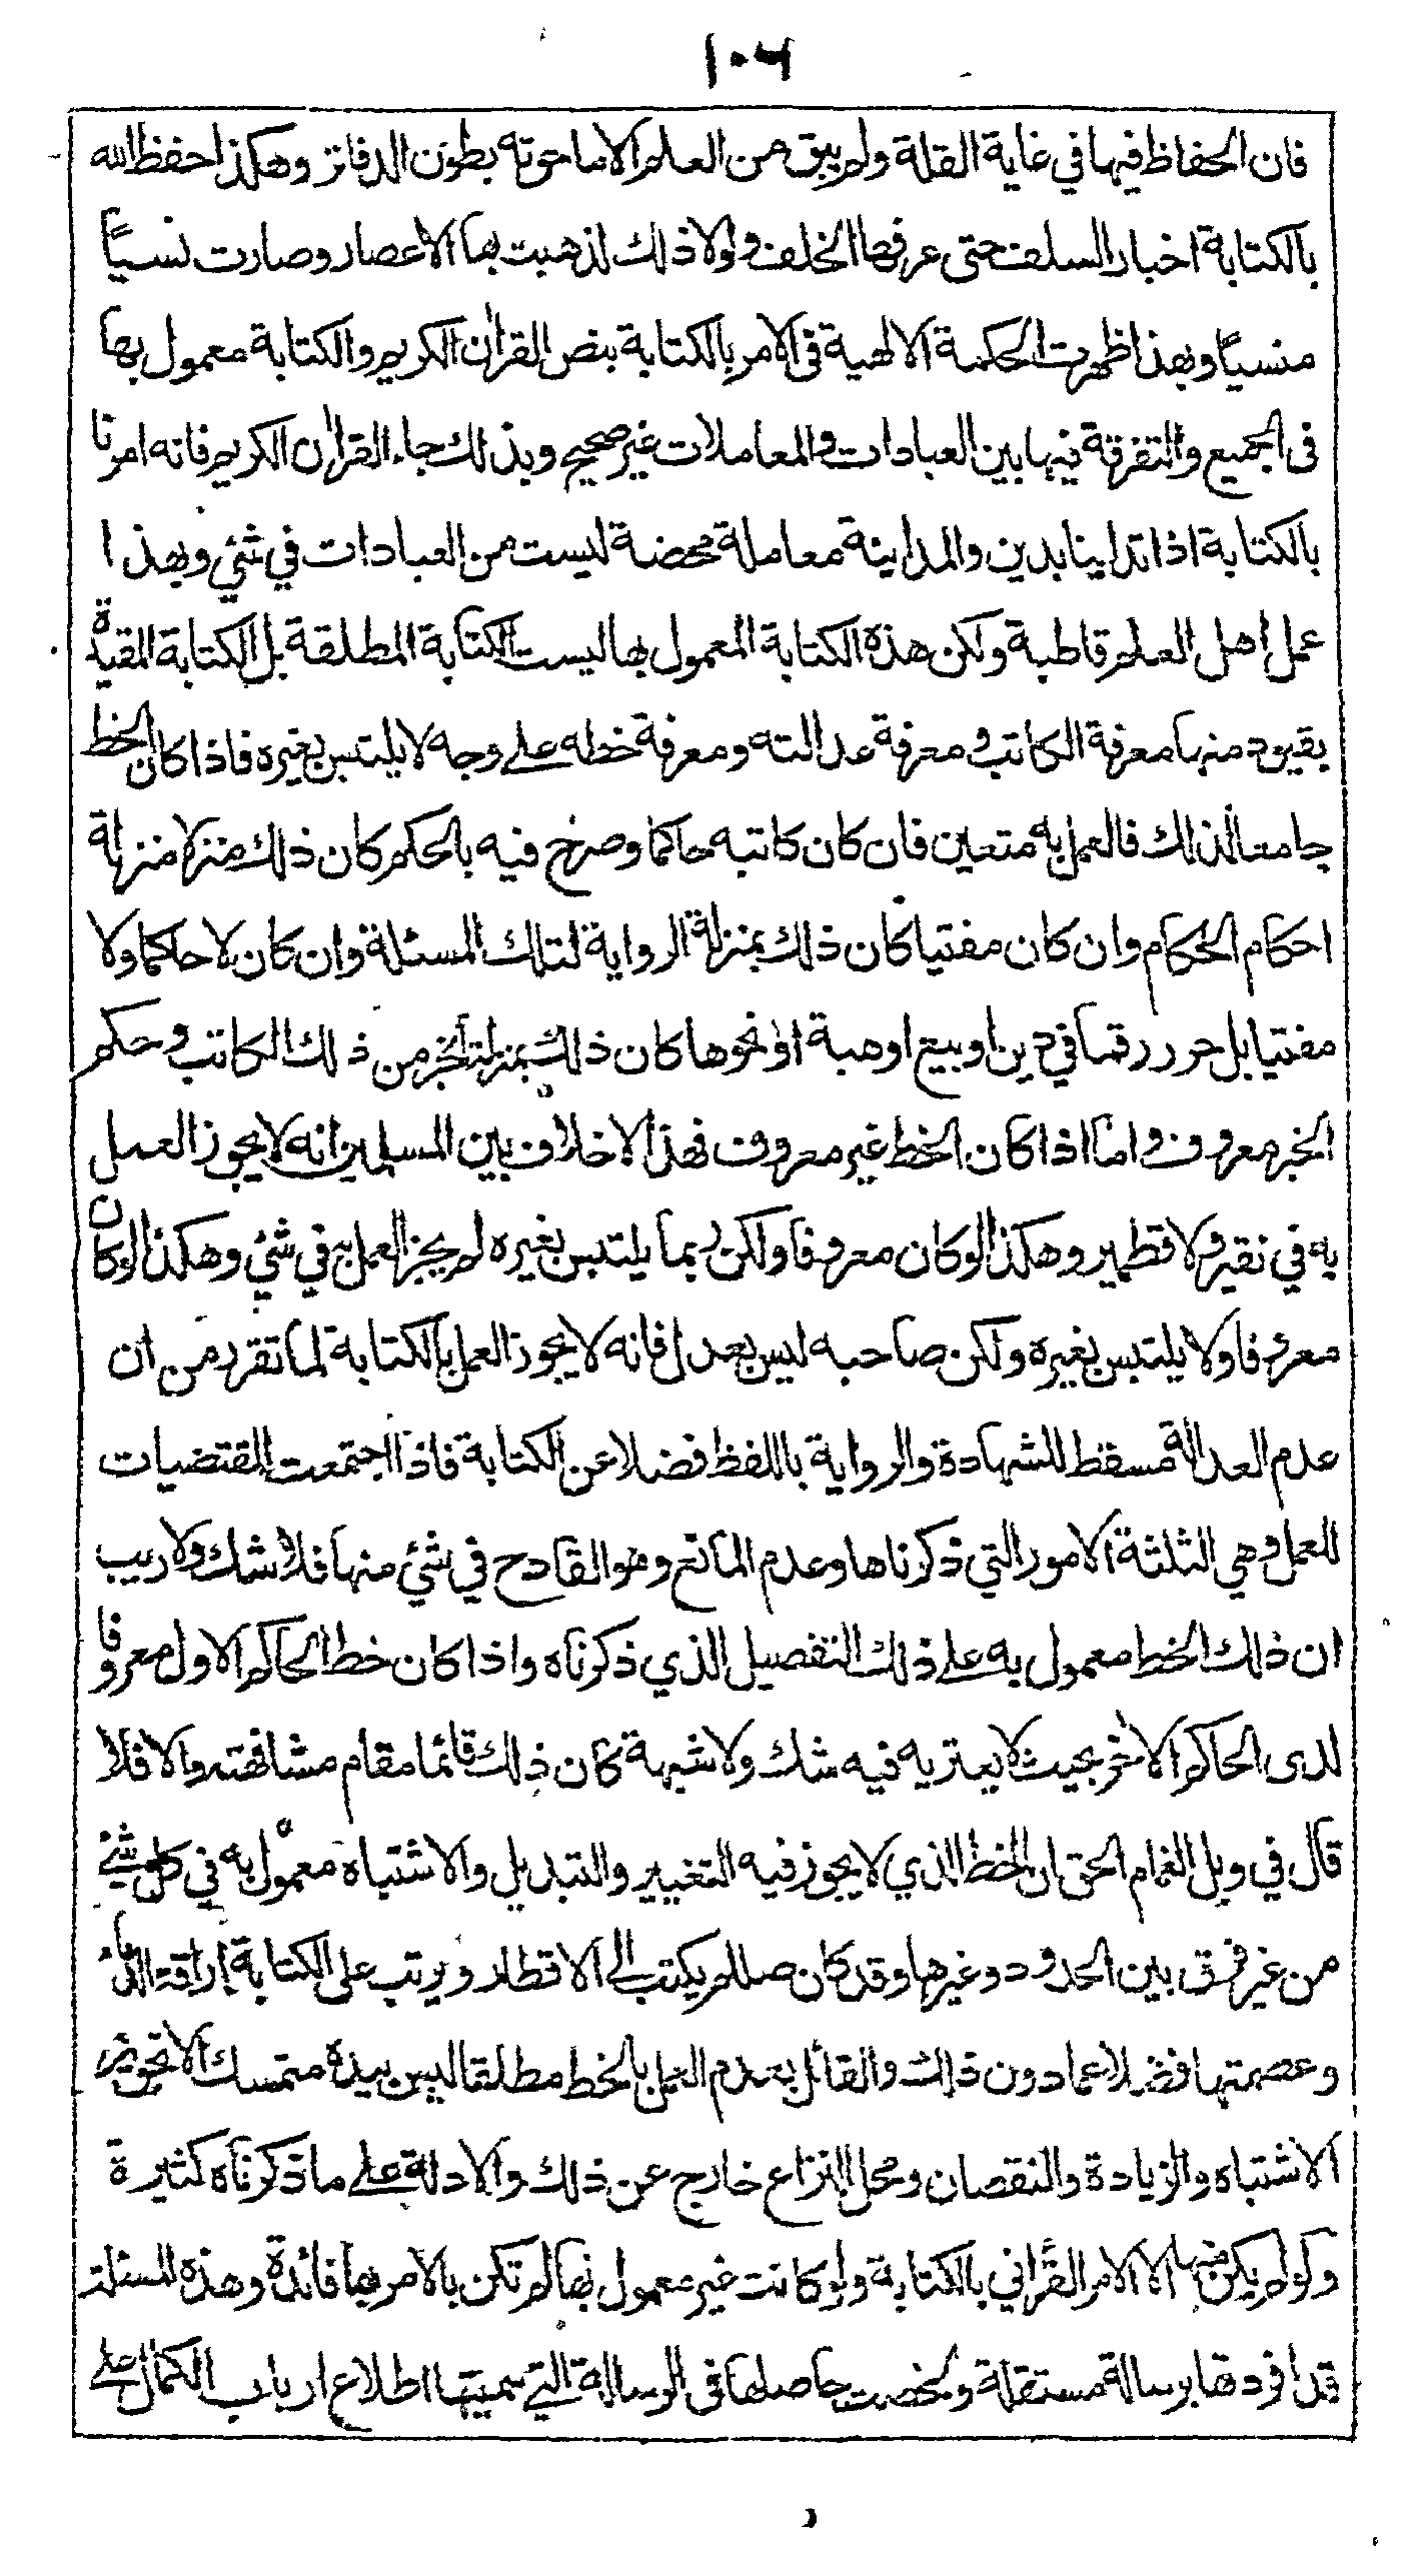 ١٠٦
فان الحفاظ فيها في غاية القلة ولم يبق من العلم الا ما حوته بطون الدفاتر وهكذا حفظ الله
بالكتابة اخبار السلف حتى عرفها الخلف ولولا ذلك لذهبت بها الاعصار وصارت نسيًا
منسيًا وبهذا ظهرت الحكمة الالهية فى الامر بالكتابة بنص القراٰن الكريم والكتابة معمول بها
فى الجميع والتفرقة فيها بين العبادات والمعاملات غير صحيح وبذلك جاء القراٰن الكريم فانه امرنا
بالكتابة اذا تداينا بدين والمداينة معاملة محضة ليست من العبادات في شئي وبهذا
عمل اهل العلم قاطبة ولكن هذه الكتابة المعمول بها ليست الكتابة المطلقة بل الكتابة المقيدة
بقيود منها معرفة الكاتب ومعرفة عدالته ومعرفة خطه على وجه لا يلتبس بغيره فاذا كان الخط
جامعا لذلك فالعمل به متعين فان كان كاتبه حاكما وصرح فيه بالحكم كان ذلك منزلا منزلة
احكام الحكام وان كان مفتيا كان ذلك بمنزلة الرواية لتلك المسئلة وان كان لا حاكما ولا
مفتيا بل حرر رقما في دين او بيع او هبة او نحوها كان ذلك بمنزلة الخبر من ذلك الكاتب وحكم
الخبر معروف واما اذا كان الخط غير معروف فهذا لا خلاف بين المسلمين انه لا يجوز العمل
به في نقير ولا قطمير وهكذا لو كان معروفا ولكن ربما يلتبس بغيره لم يجز العمل به في شئي وهكذا لو كان
معروفا ولا يلتبس بغيره ولكن صاحبه ليس بعدل فانه لا يجوز العمل بالكتابة لما تقرر من ان
عدم العدالة مسقط للشهادة والرواية باللفظ فضلا عن الكتابة فاذا اجتمعت المقتضيات
للعمل وهي الثلثة الامور التي ذكرناها وعدم المانع وهو القادح في شئي منها فلا شك ولا ريب
ان ذلك الخط معمول به على ذلك التفصيل الذي ذكرناه واذا كان خط الحاكم الاول معروفا
لدى الحاكم الاخر بحيث لا يعتريه فيه شك ولا شبهة كان ذلك قائما مقام مشافهته والا فلا
قال في وبل الغمام الحق ان الخط الذي لا يجوز فيه التغيير والتبديل والاشتباه معمول به في كل شئ
من غير فرق بين الحدود وغيرها وقد كان صللم يكتب الى الاقطار ويرتب على الكتابة اراقة الدماء
وعصمتها فضلا عما دون ذلك والقائل بعدم العمل بالخط مطلقا ليس بيده متمسك الا تجويز
الاشتباه والزيادة والنقصان ومحل النزاع خارج عن ذلك والادلة على ما ذكرناه كثيرة
ولو لم يكن منها الا الامر القراٰني بالكتابة ولو كانت غير معمول بها لم تكن بالامر بها فائدة وهذه المسئلة
قد افردتها برسالة مستقلة ولخصت حاصلها فى الرسالة التي سميتها اطلاع ارباب الكمال على